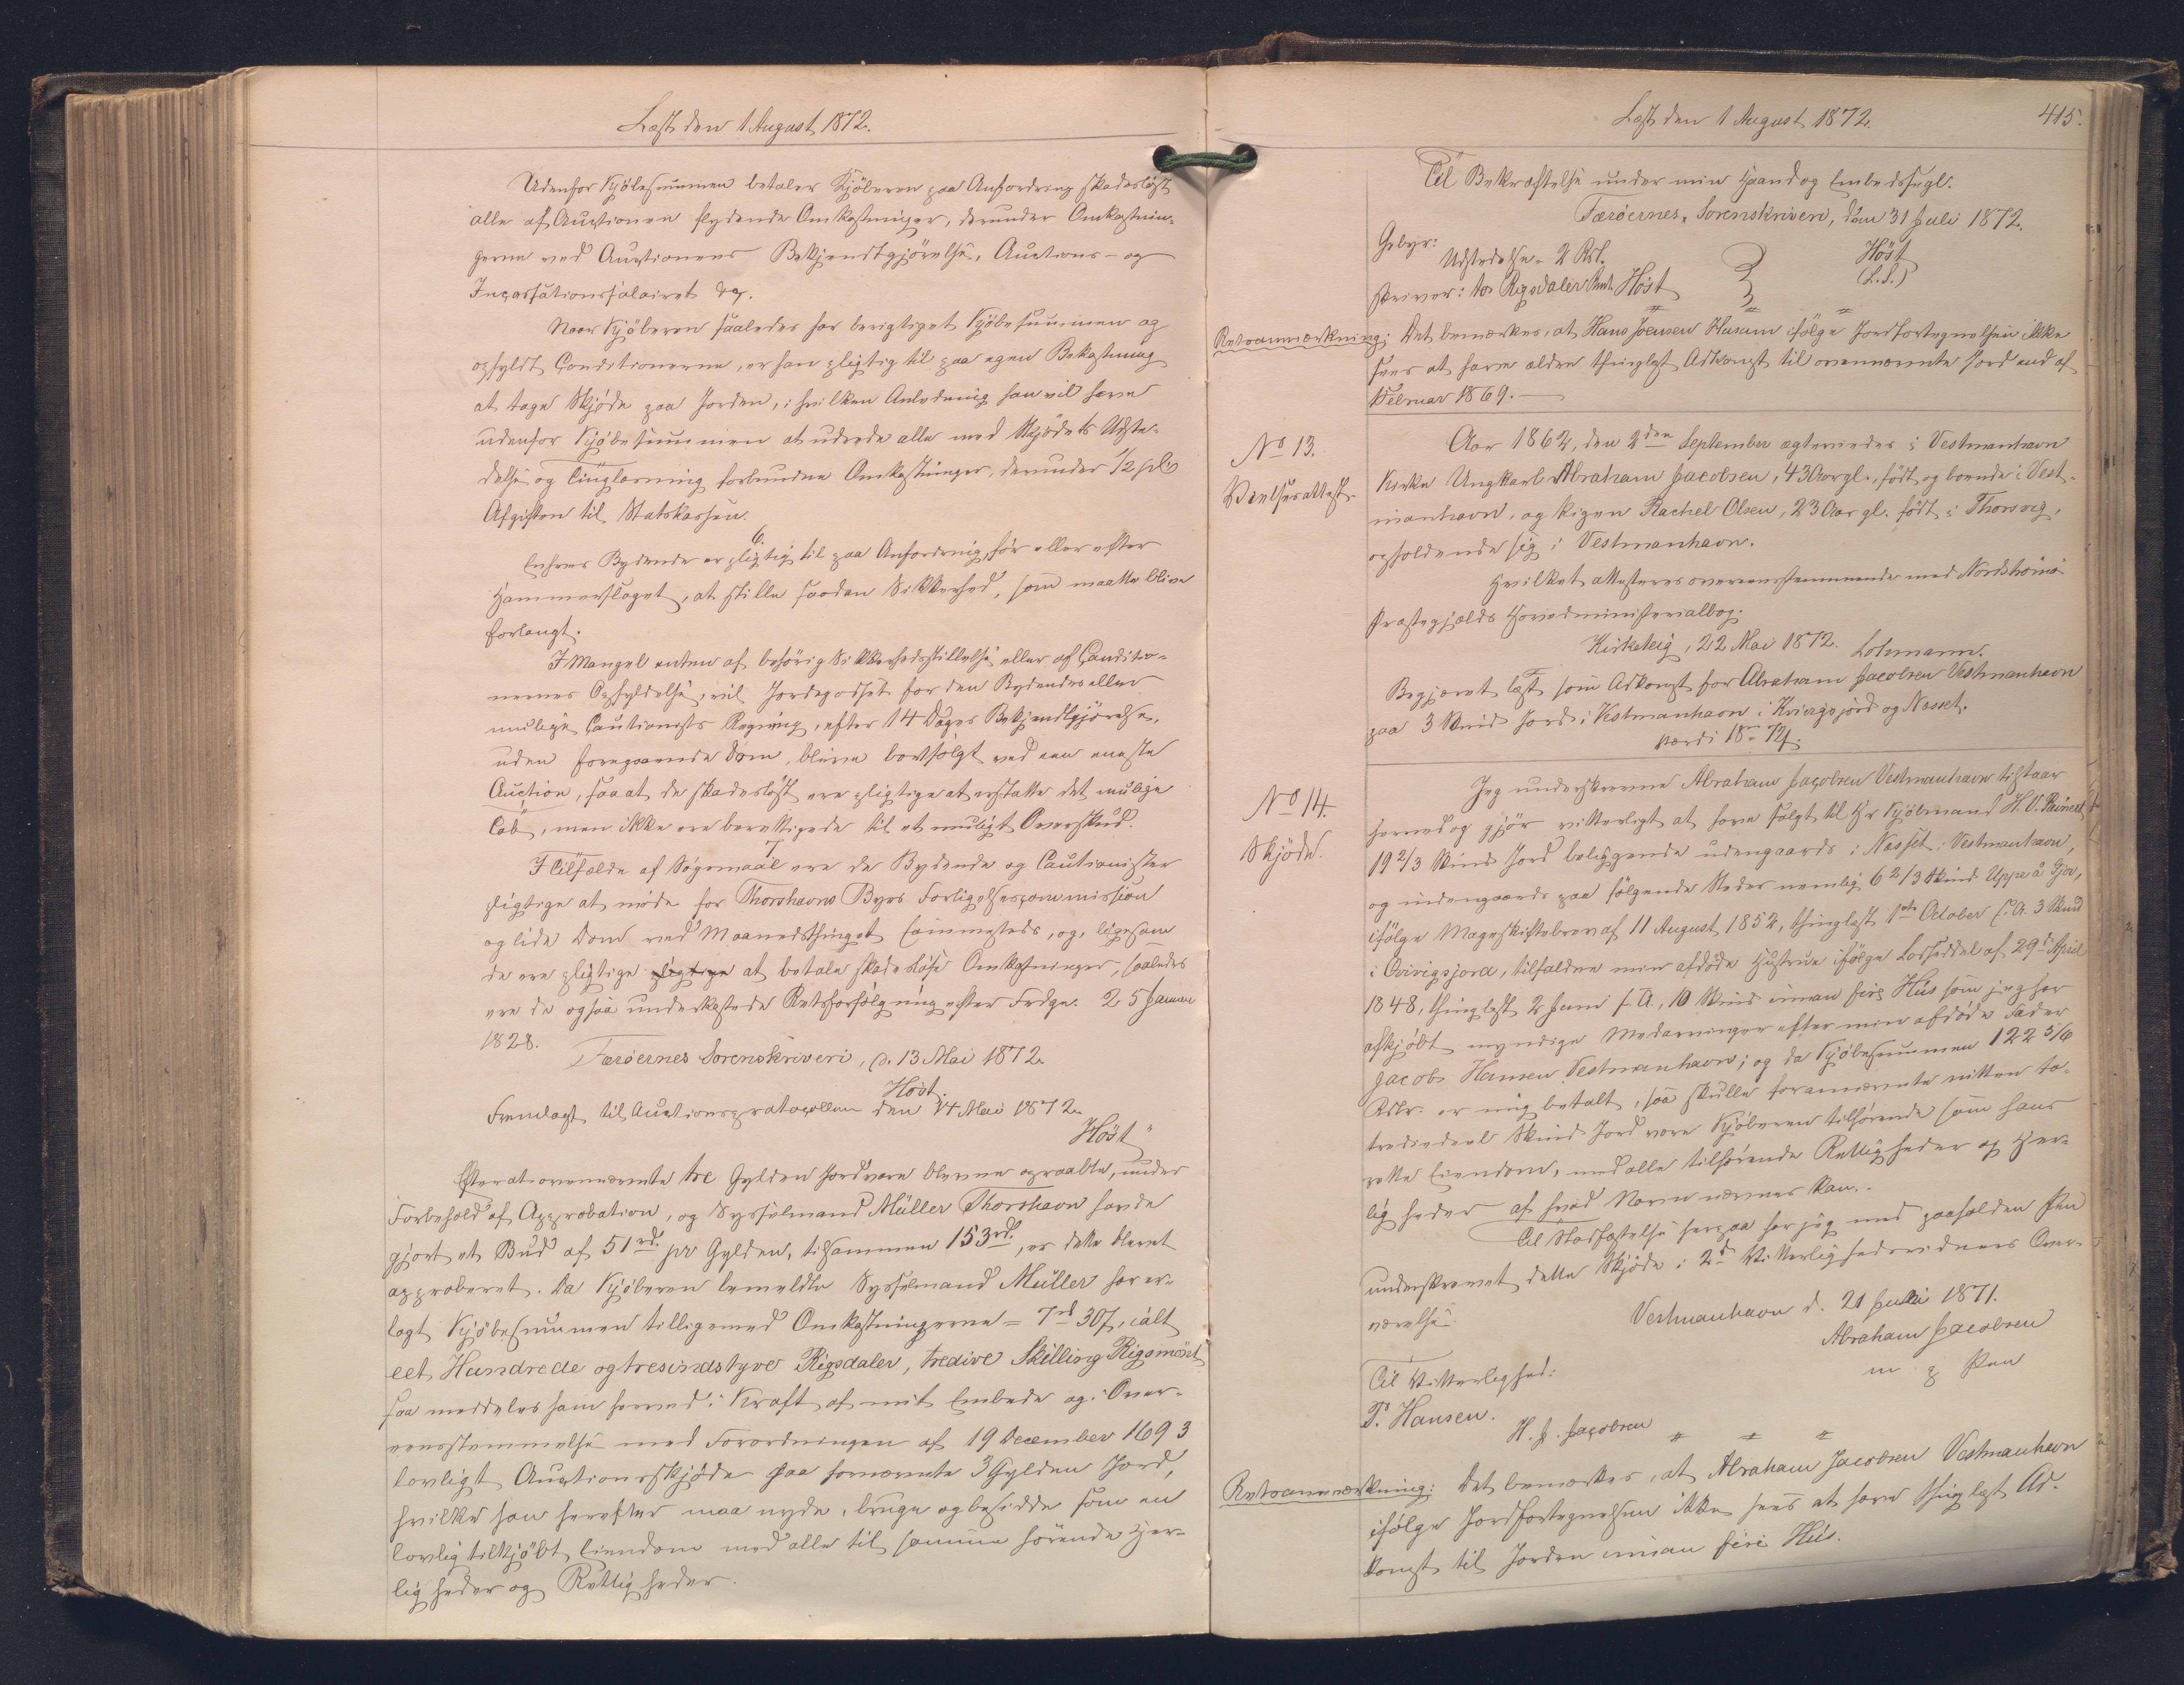 Læst den 1 August 1872.
Udenfor Kjöbesummen betaler Kjöberen paa Anfordring skadeslöst
alle af Auctionen flydende Omkostninger, derunder Omkostnin-
gerne ved Auctionens Bekjendtgjörelse, Auctions- og
Incassationssalairet &c.
Naar Kjöberen saaledes har berigtiget Kjöbesummen og
opfyldt Conditionerne, er han pligtig til paa egen Bekostning
at tage Skjöde paa Jorden, i hvilken Anledning han vil have
udenfor Kjöbesummen at udrede alle med Skjödets Udste-
delse og Tinglæsning forbundne Omkostninger, derunder 1/2 pCt
Afgiften til Statskassen.
6.
Enhver Bydende er pligtig til paa Anfordring, för eller efter
Hammerslaget, at stille saadan Sikkerhed, som maatte blive
forlangt.
I Mangel enten af behörig Sikkerhedsstillelse eller af Conditio-
nernes Opfyldelse, vil Jordegodset for den Bydendes eller
mulige Cautionists Regning, efter 14 Dages Bekjendtgjörelse,
uden foregaaende Dom, blive bortsolgt ved een eneste
Auction, saa at de skadeslöst ere pligtige at erstatte det mulige
Tab, men ikke ere berettigede til et muligt Overskud.
7
I Tilfælde af Sögsmaal ere de Bydende og Cautionister
pligtige at möde for Thorshavns Byes Forligelsescommission
og lide Dom ved Maanedsthinget sammesteds, og, ligesom
de ere pligtige pligtige at betale skadeslöse Omkostninger, saaledes
ere de ogsaa underkastede Retsforfölgning efter Frdgn. 25 Januar
1828.
Færöernes Sorenskriveri, d. 13 Mai 1872.
Höst.
Fremlagt til Auctionsprotocollen den 14 Mai 1872.
Höst"
Efterat ovennævnte tre Gylden Jord vare blevne opraabte, under
Forbehold af Approbation, og Sysselmand Müller Thorshavn havde
gjort et Bud af 51 rd. pr Gylden, tilsammen 153 rd., er dette blevet
approberet. Da Kjöberen bemeldte Sysselmand Müller har er-
lagt Kjöbesummen tilligemed Omkostningerne = 7 rd 30 s, ialt
eet Hundrede og tresindstyve Rigsdaler, tredive Skilling Rigsmönt
saa meddeles ham herved i Kraft af mit Embede og i Over-
eensstemmelse med Forordningen af 19 December 1693
lovligt Auctionsskjöde paa fornævnte 3 Gylden Jord,
hvilke han herefter maa nyde, bruge og besidde som en
lovlig tilkjöbt Eiendom med alle til samme hörende Her-
ligheder og Rettigheder.
Læst den 1 August 1872. 415.
Til Bekræftelse under min Haand og Embedssegl.
Færöernes Sorenskriveri, den 31 Juli 1872.
Gebyr:
Udstedelse - 2 Rd.
Höst
skriver: to Rigsdaler Rmt. Höst (L.S.)
Retsanmærkning: Det bemærkes, at Hans Joensen Husum ifölge Jordfortegnelsen ikke
sees at have ældre thinglæst Adkomst til ovennævnte Jord end af
Februar 1869.
No 13.
Vielsesattest.
Aar 1862, den 2den September ægteviedes i Vestmanhavn
Kirke Ungkarl Abraham Jacobsen, 43 Aar gl., födt og boende i Vest-
manhavn, og Pigen Rachel Olsen, 23 Aar gl. födt i Thorsvig,
opholdende sig i Vestmanhavn.
Hvilket attesteres overeensstemmende med Nordströmö
Præstegjælds Hovedministerialbog.
Kirketeig, 22 Mai 1872. Lohmann.
Begjæret læst som Adkomst for Abraham Jacobsen Vestmanhavn
paa 3 Skind Jord i Vestmanhavn i Kviegsjord og Nesset.
Værdi 18 rd 72 s.
No 14.
Skjöde.
Jeg underskrevne Abraham Jacobsen Vestmanhavn tilstaar
herved og gjör vitterligt at have solgt til Hr Kjöbmand H. V.
19 2/3 Skind Jord beliggende udengaards i Nesset i Vestmanhavn,
og indengaards paa fölgende Steder nemlig 6 2/3 Skind Uppe å Gjov,
ifölge Mageskiftebrev af 11 August 1852, thinglæst 1ste October s. A. 3 Skind
i Qvivigsjord, tilfaldne min afdöde Hustrue ifölge Lodseddel af 29de April
1848, thinglæst 2 Juni s. A., 10 Skind innan firi Hús som jeg har
afkjöbt myndige Medarvinger efter min afdöde Fader
Jacob Hansen Vestmanhavn; og da Kjöbesummen 122 5/6
Rdlr. er mig betalt, saa skulle forannævnte nitten to-
trediedeel Skind Jord være Kjöberen tilhörende som hans
rette Eiendom, med alle tilhörende Rettigheder og Her-
ligheder af hvad Navn nævnes kan.
Til Stadfæstelse herpaa har jeg med paaholden Pen
underskrevet dette Skjöde i 2de Vitterlighedsvidners Over-
værelse.
Vestmanhavn d. 21 Juli 1871.
Abraham Jacobsen
m. p. Pen
Til Vitterlighed:
P. Hansen.
H. J. Jacobsen
Retsanmærkning: Det bemærkes, at Abraham Jacobsen Vestmanhavn
ifölge Jordfortegnelsen ikke sees at have thinglæst Ad-
komst til Jorden innan firi Hús.